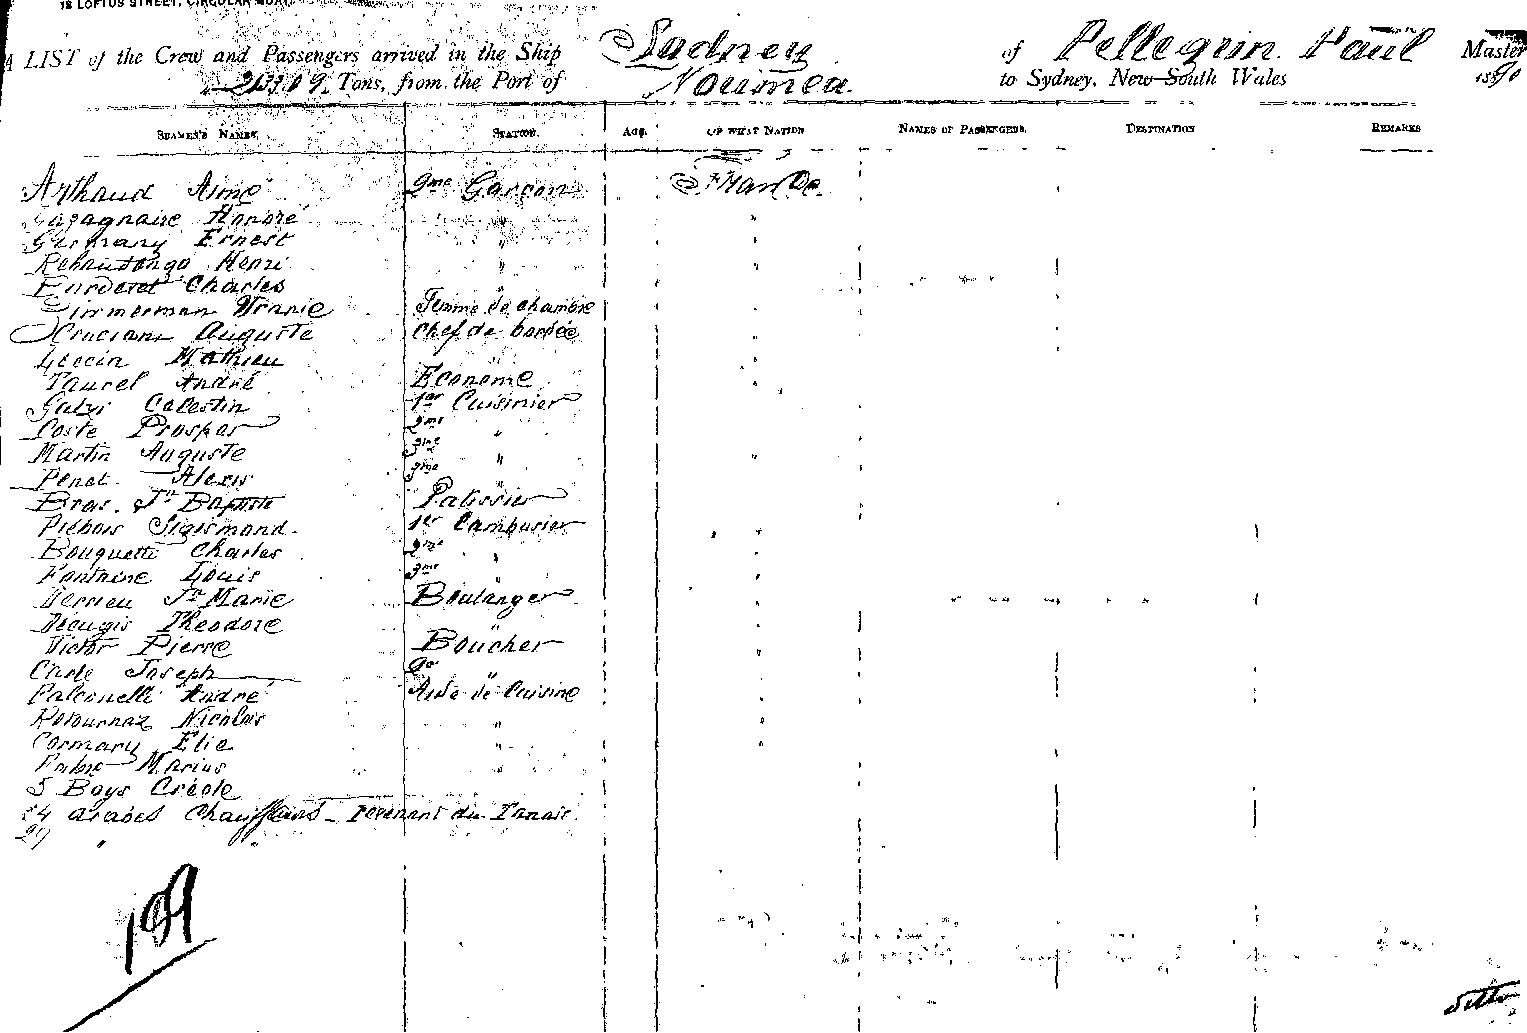 18 LOFTUS STREET, CIRCULAR QUAY.
A LIST of the Crew and Passengers arrived in the Ship Sydney of Pellegrin Paul Master
Tons, from the Port of Noumea to Sydney, New South Wales 1890
SEAMEN'S NAMES. STATION. AGE. OF WHAT NATION NAMES OF PASSENGERS. DESTINATION REMARKS
Arthaud Aimé 2me Garçon France
Gazagnaire Honoré " "
Germany Ernest " "
Henri " "
Charles "
Zimmerman Uranie Femme de chambre "
Cruciani Auguste Chef de bordée "
Mathieu " "
Taurel André Econome "
Galzi Celestin 1er Cuisinier "
Coste Prosper 2me " "
Martin Auguste 3me " "
Penet Alexis 3me "
Bras. Jn Baptiste Patissier "
Piébois Sigismond 1er Cambusier "
Bouquette Charles 2me " "
Fontaine Louis 3me " "
Verneu Jn Marie Boulanger "
Théodore " "
Victor Pierre Boucher "
Joseph 2e " "
Falconelli André Aide de Cuisine "
Nicolas " "
Cormary Elie " "
Fabre Marius "
5 Boys Créole
24 arabes Chauffeurs - revenant du Tanais.
29 " "
159